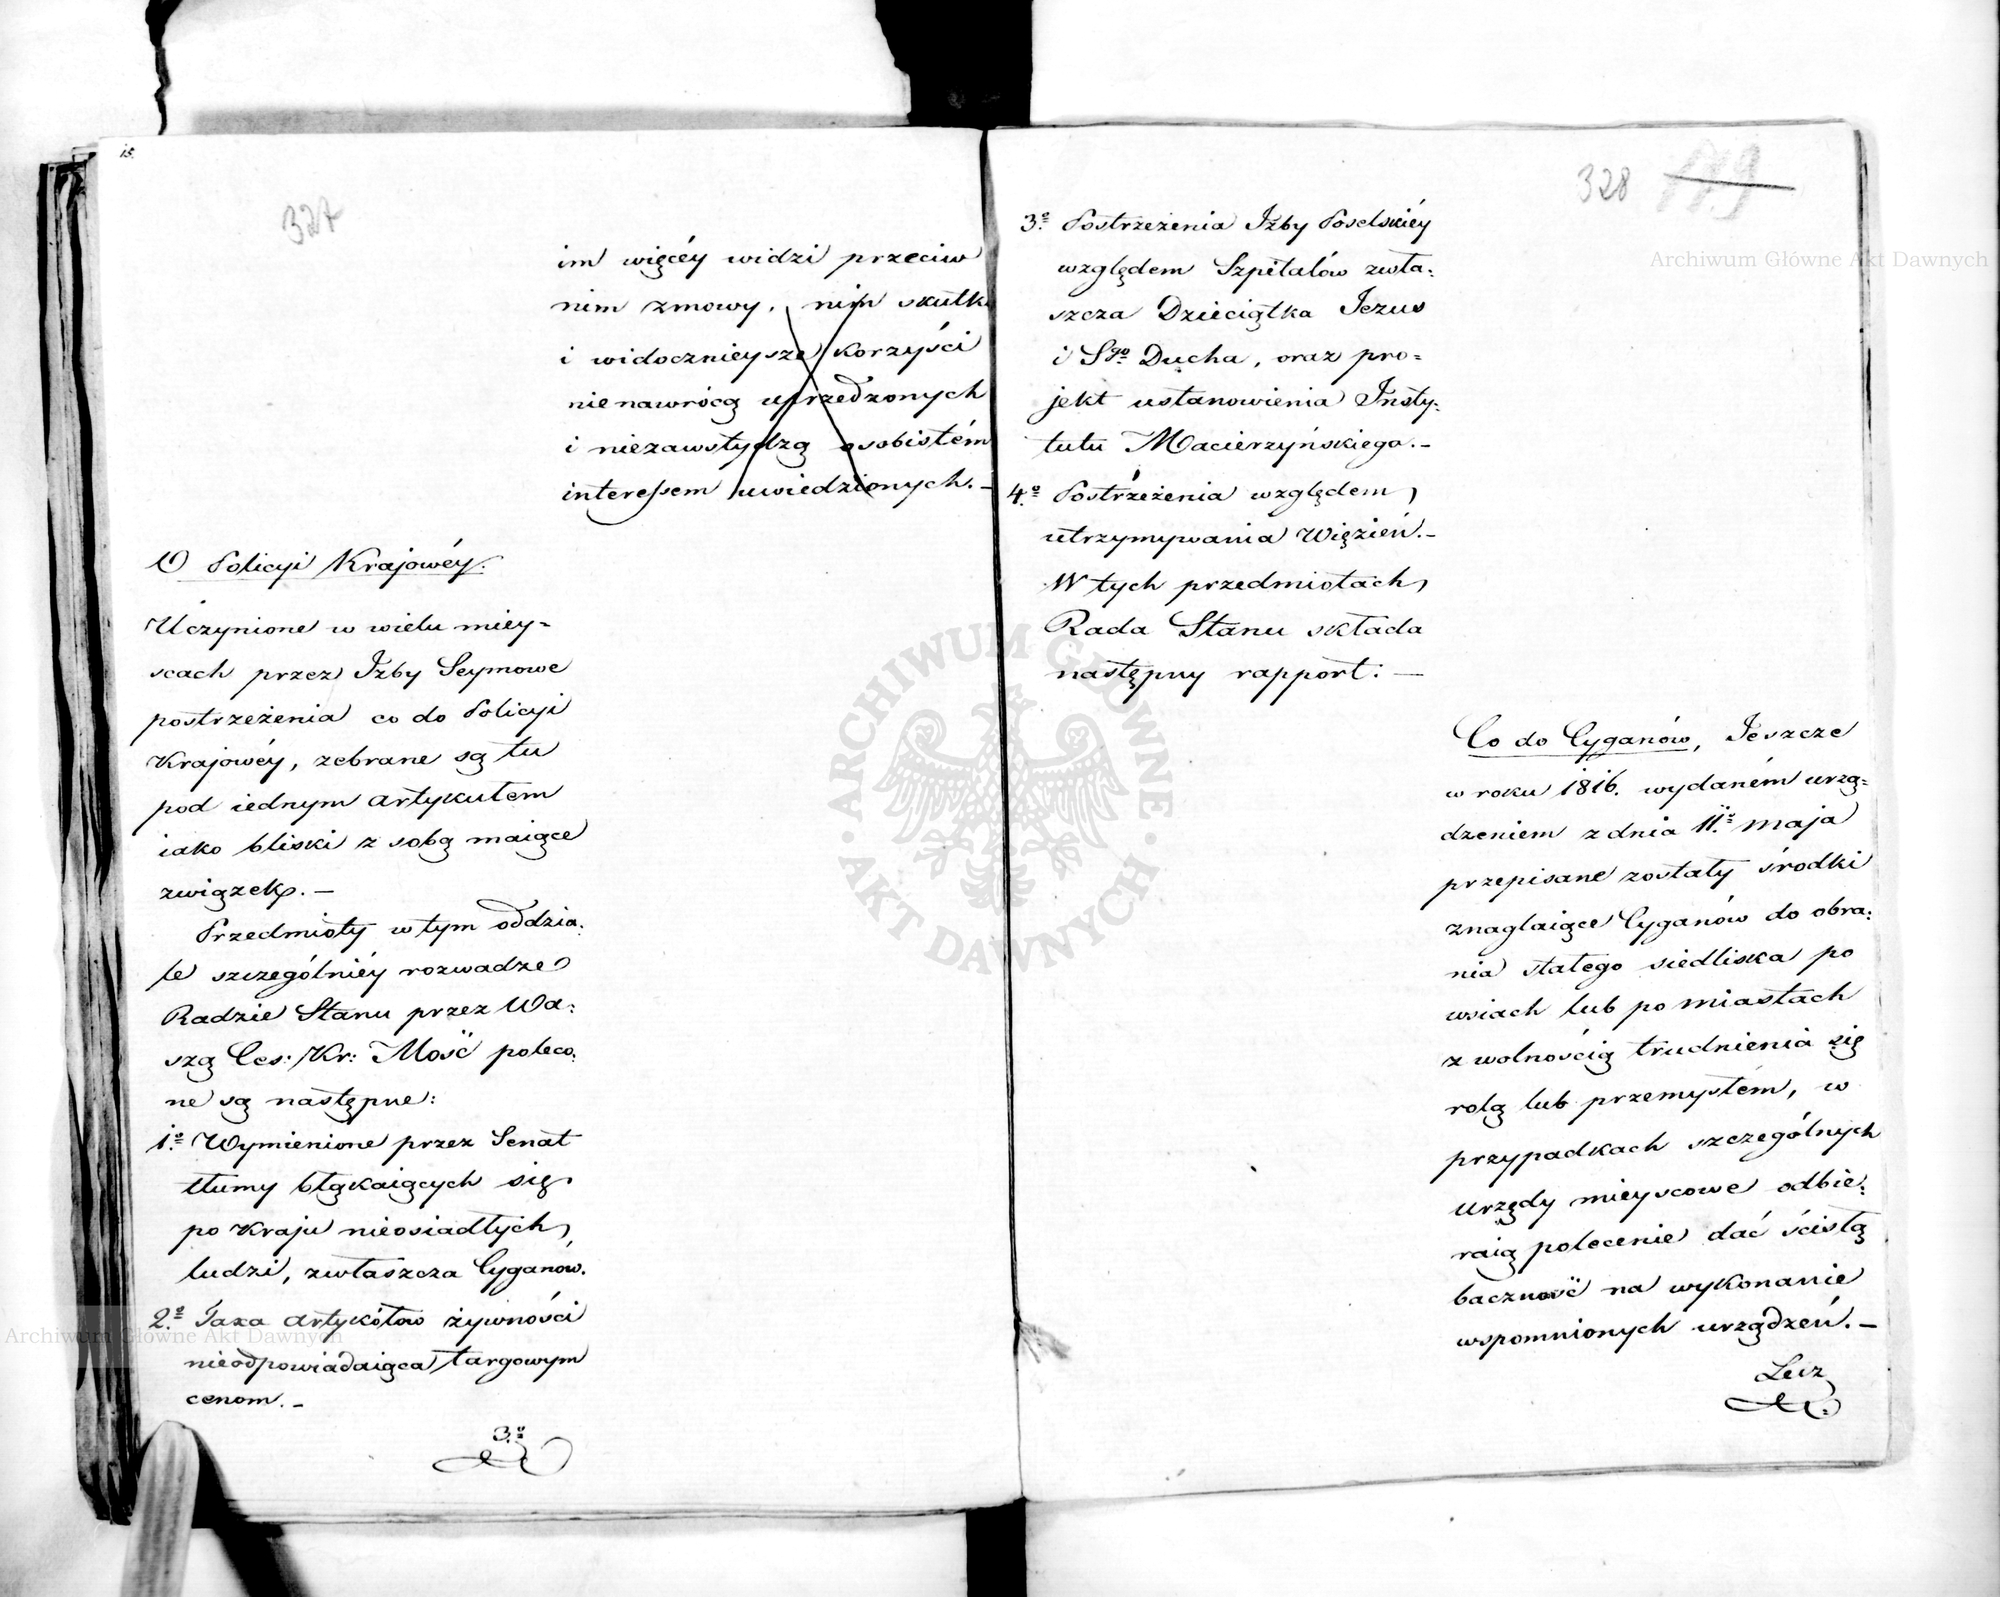 15.
327
im więcéy widzi przeciw
nim zmowy, nim skutki
i widocznieysze korzyści
nienawrócą uprzedzonych
i niezawstydzą osobistém
interessem uwiedzionych. –
O Policyi Krajowéy.
Uczynione w wielu miey=
scach przez Izby Seymowe
postrzeżenia co do Policyi
Krajowéy, zebrane są tu
pod iednym artykułem
iako bliski z sobą maiące
związek. –
Przedmioty w tym oddzia:
le szczególniéy rozwadze
Radzie Stanu przez Wa:
szą Ces: Kr: Mość poleco:
ne są następne:
1o. Wymienione przez Senat
tłumy błąkaiących się
po Kraju nieosiadłych,
ludzi, zwłaszcza Cyganów.
2o. Taxa artykółów żywności
nieodpowiadaiąca targowym
cenom. –
3o.
328 119
3o. Postrzeżenia Izby Poselskiéy
względem Szpitalów zwła:
szcza Dzieciątka Jezus
i Sgo Ducha, oraz pro=
jekt ustanowienia Insty:
tutu Macierzyńskiego. –
4o. Postrzeżenia względem,
utrzymywania Więzień. –
W tych przedmiotach,
Rada Stanu składa
następny rapport: –
Co do Cyganów, Jeszcze
w roku 1816. wydaném urzą=
dzeniem z dnia 11o. maja
przepisane zostały środki
znaglaiące Cyganów do obra:
nia stałego siedliska po
wsiach lub po miastach
z wolnością trudnienia się
rolą lub przemysłem, w
przypadkach szczególnych
urzędy mieyscowe odbie:
raią polecenie dać ścisłą
baczność na wykonanie
wspomnionych urządzeń. –
Lecz
Archiwum Główne Akt Dawnych
Archiwum Główne Akt Dawnych
ARCHIWUM GŁÓWNE
AKT DAWNYCH